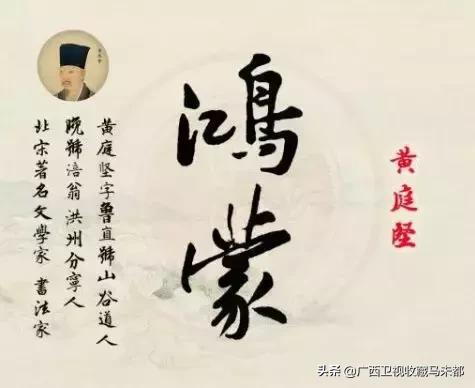 黄庭坚
鸿蒙
黄庭坚字鲁直号山谷道人
晚号涪翁洪州分宁人
北宋著名文学家 书法家
头条 @广西卫视收藏马未都